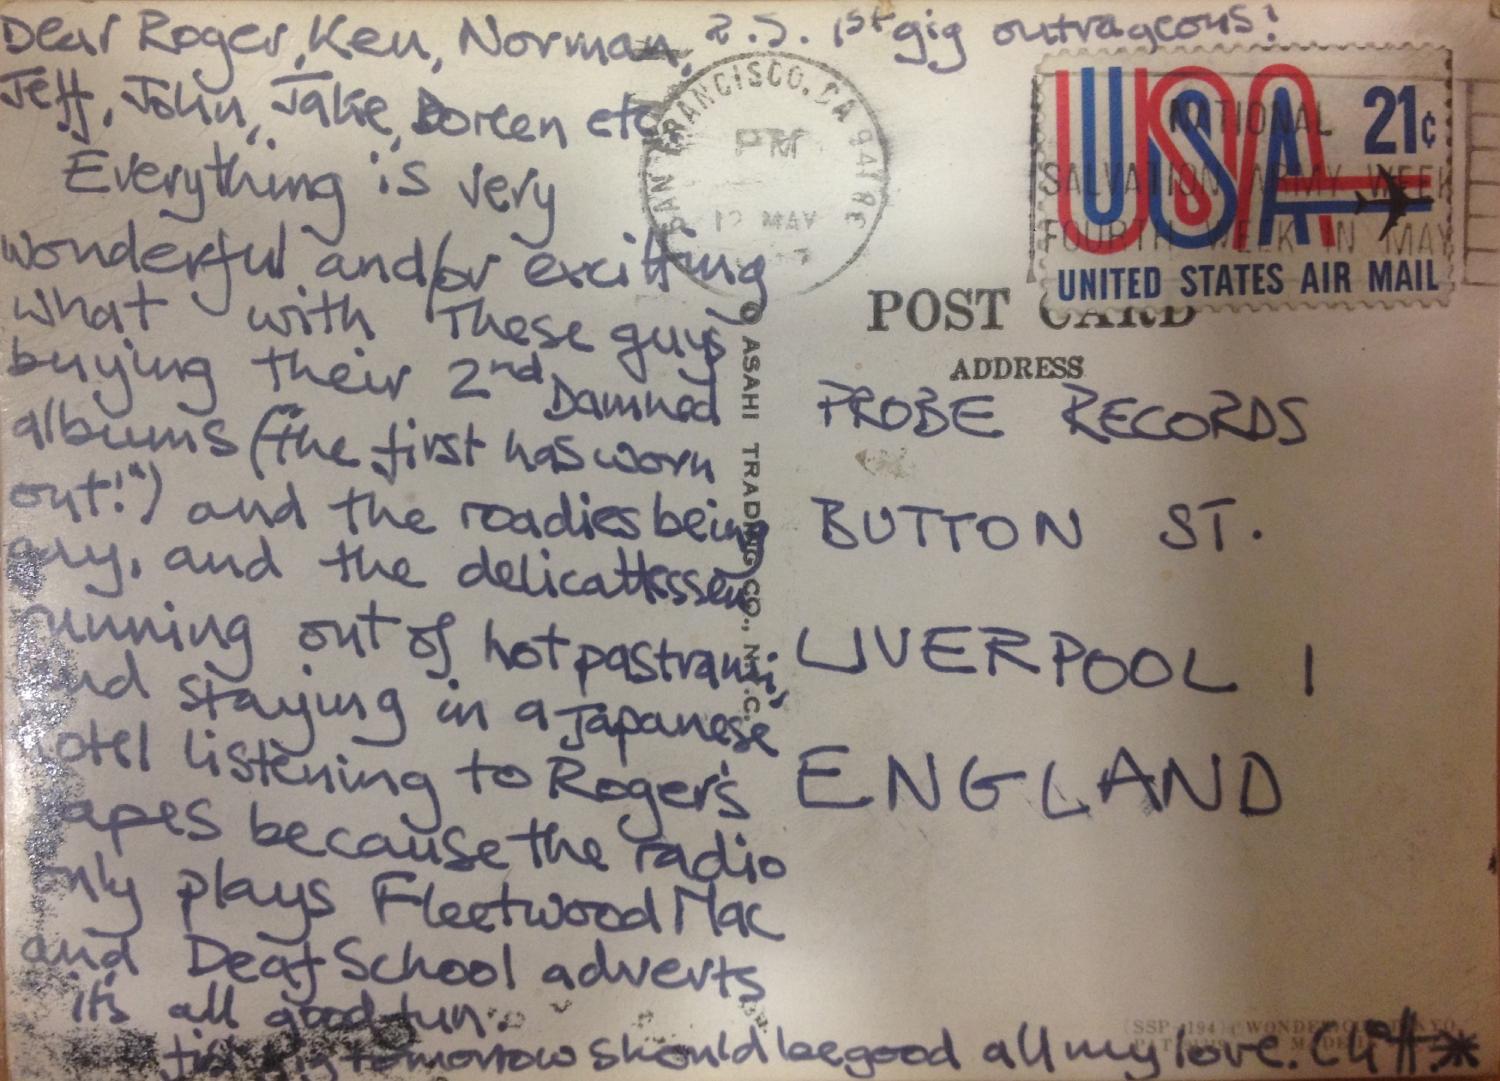 Dear Roger, Ken, Norman,
Jeff, John, Jake, Doreen etc.
Everything is very
wonderful and/or exciting
what with these guys
buying their 2nd Damned
albums (the first has worn
out!") and the roadies being
gay, and the delicattessen
running out of hot pastrami,
and staying in a Japanese
hotel listening to Roger's
tapes because the radio
only plays Fleetwood Mac
and Deaf School adverts
it's all good fun.
gig tomorrow should be good all my love. Cliff*
P.S. 1st gig outrageous!
SAN FRANCISCO, CA
PM
MAY
NATIONAL
SALVATION ARMY WEEK
FOURTH WEEK IN MAY
USA 21c
UNITED STATES AIR MAIL
POST CARD
ADDRESS
PROBE RECORDS
BUTTON ST.
LIVERPOOL 1
ENGLAND
© ASAHI TRADING CO., N.Y.C.